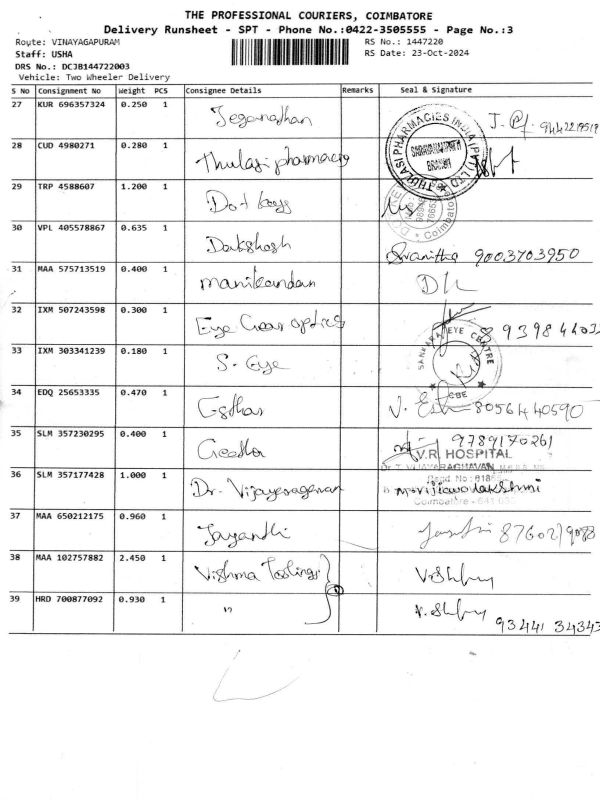 THE PROFESSIONAL COURIERS, COIMBATORE
Delivery Runsheet - SPT - Phone No.:0422-3505555 - Page No.:3
Route: VINAYAGAPURAM
Staff: USHA
DRS No.: DCJB144722003
Vehicle: Two Wheeler Delivery
RS No.: 1447220
RS Date: 23-Oct-2024
S No Consignment No Weight PCS Consignee Details Remarks Seal & Signature
27 KUR 696357324 0.250 1 Jeganathan
28 CUD 4980271 0.280 1 Thulasi pharmacy
THULASI PHARMACIES INDIA (P) LTD
BRANCH
29 TRP 4588607 1.200 1 Dot boys
Coimbatore
30 VPL 405578867 0.635 1 Dakshosh Swanitha 9003703950
31 MAA 575713519 0.400 1 manikandan
32 IXM 507243598 0.300 1 Eye Gear optics
SANKARA EYE CENTRE
CBE
33 IXM 303341239 0.180 1 S. Eye
34 EDQ 25653335 0.470 1 Esthar 8056440590
35 SLM 357230295 0.400 1 9789170261
V.R. HOSPITAL
Dr. T. VIJAYARAGHAVAN
36 SLM 357177428 1.000 1 Dr. Vijayaragavan
Coimbatore - 641 035
37 MAA 650212175 0.960 1 Jayanthi
38 MAA 102757882 2.450 1 Vishma Toolings
39 HRD 700877092 0.930 1 "
93441 34343